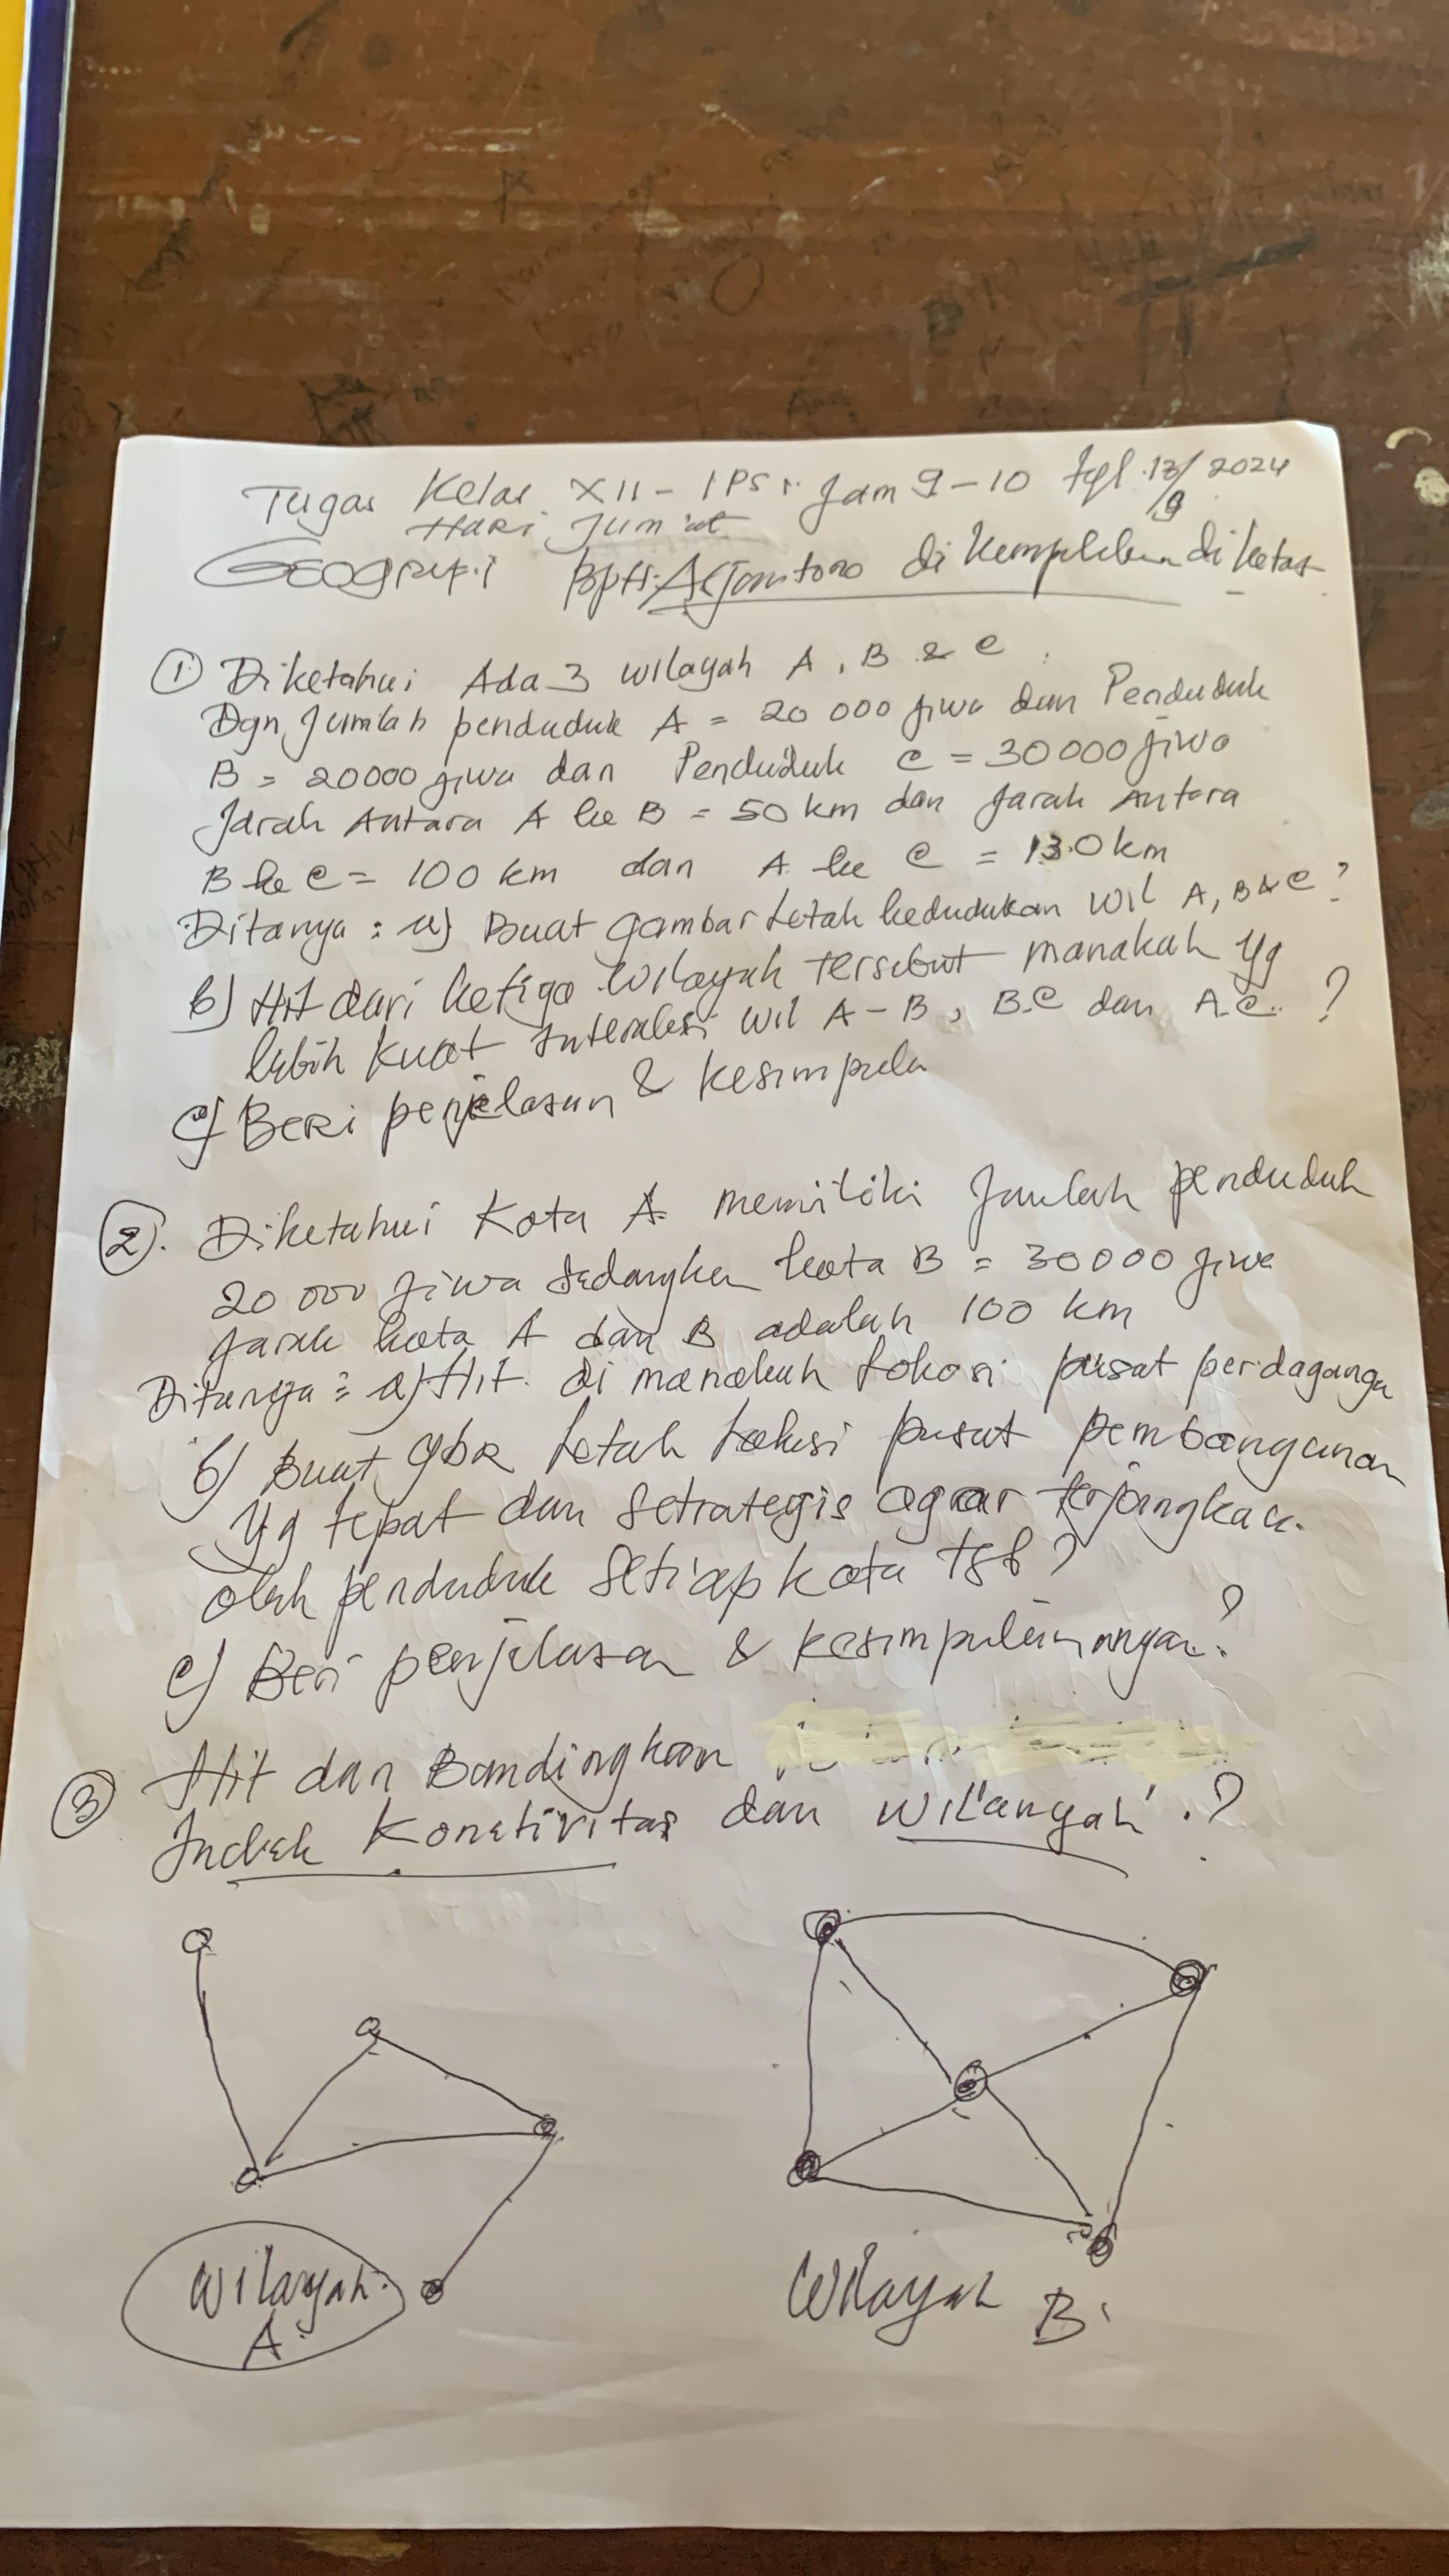 Tugas Kelas XII - IPS 1. Jam 9-10 tgl. 13/9 2024
Hari Jum'at
Geografi di kumpulkan di kertas
① Diketahui Ada 3 wilayah A, B & C.
Dgn Jumlah penduduk A = 20 000 jiwa dan Penduduk
B = 20000 jiwa dan Penduduk C = 30000 jiwa
Jarak Antara A ke B = 50 km dan Jarak Antara
B ke C = 100 km dan A ke C = 130 km
Ditanya : a) Buat gambar Letak kedudukan wil A, B & C?
b) Hit dari ketiga wilayah tersebut manakah yg
lebih kuat Interaksi wil A-B, B.C dan A.C..?
c) Beri penjelasan & kesimpula
②. Diketahui Kota A memiliki Jumlah penduduk
20 000 jiwa sedangkan kota B = 30000 jiwa
jarak kota A dan B adalah 100 km
Ditanya : a) Hit. di manakah Lokasi pusat perdaganga
b) Buat gbr Letak Lokasi pusat pembangunan
yg tepat dan setrategis agar terjangkau
oleh penduduk setiap kota tsb?
c) Beri penjelasan & kesimpulannya?
③ Hit dan Bandingkan
Indek Konetivitas dan wilayah.?
Wilayah A.
Wilayah B